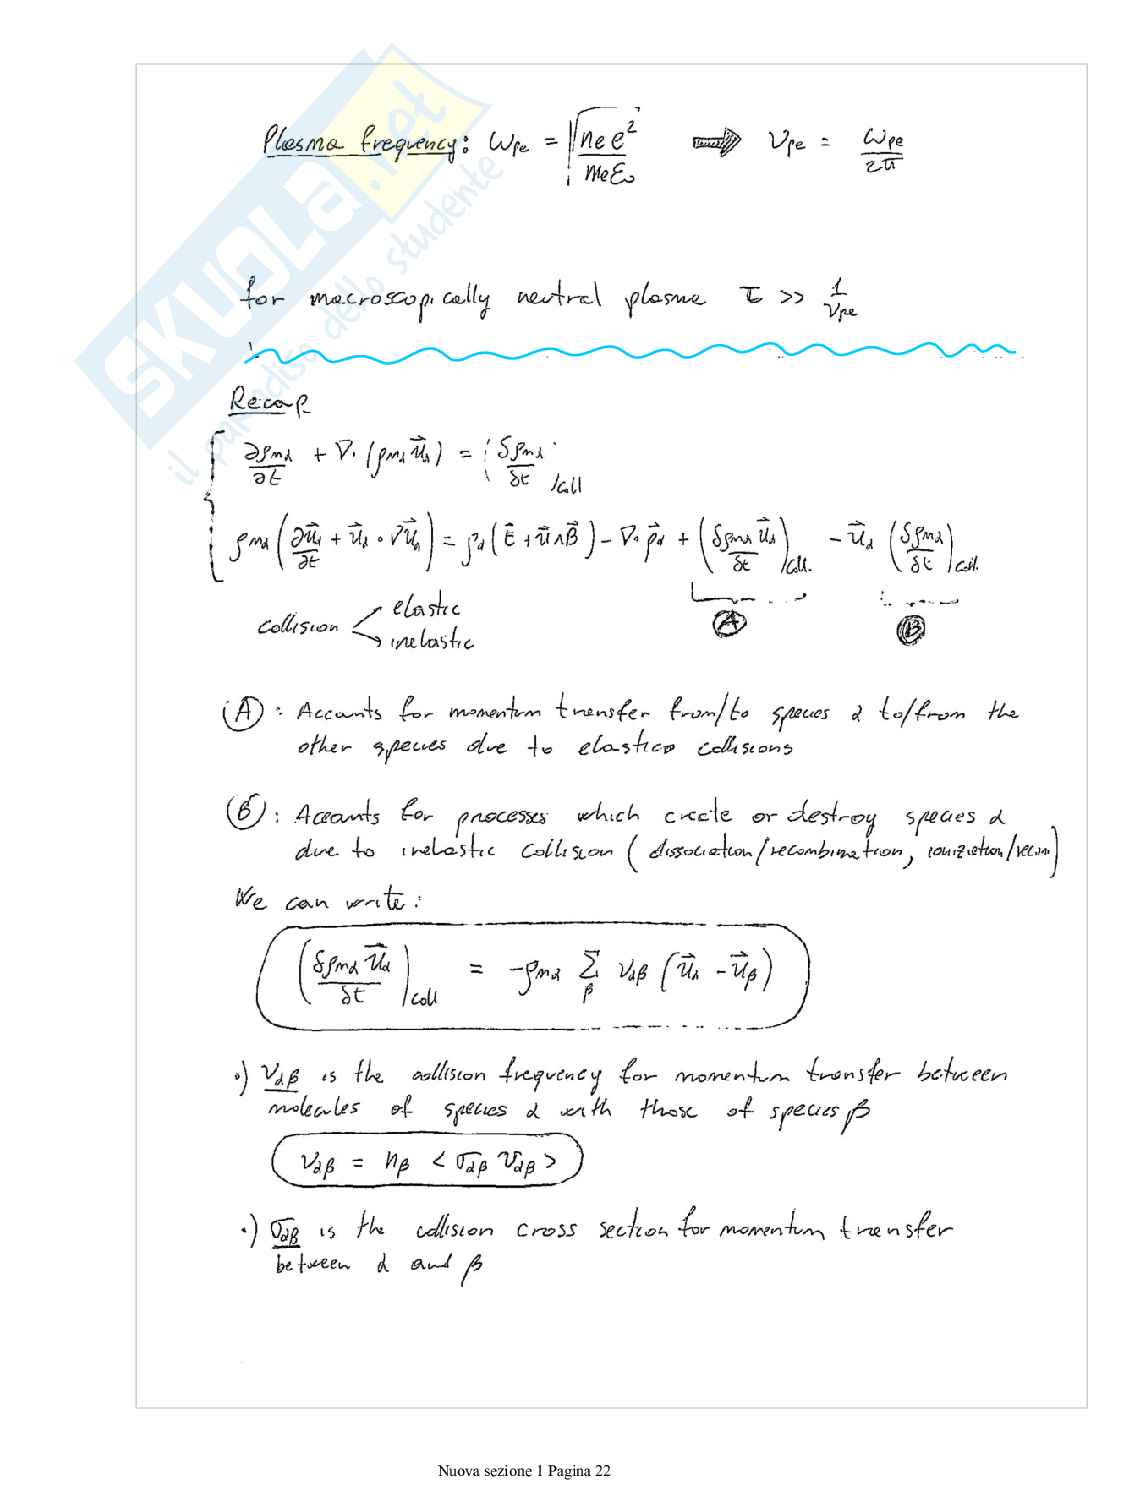 Plasma frequency: ω_pe = √(n_e e² / m_e ε₀) ⇒ ν_pe = ω_pe / 2π
for macroscopically neutral plasma τ >> 1/ν_pe
Recap
∂ρ_mα/∂t + ∇·(ρ_mα u⃗_α) = (δρ_mα/δt)_coll
ρ_mα (∂u⃗_α/∂t + u⃗_α · ∇u⃗_α) = ρ_α (E⃗ + u⃗ ∧ B⃗) − ∇· p⃗_α + (δρ_mα u⃗_α/δt)_coll. − u⃗_α (δρ_mα/δt)_coll.
collision elastic
inelastic
A B
(A) : Accounts for momentum transfer from/to species α to/from the
other species due to elastic collisions
(B) : Accounts for processes which create or destroy species α
due to inelastic collision (dissociation/recombination, ionization/recom)
We can write:
(δρ_mα u⃗_α/δt)_coll = −ρ_mα Σ_β ν_αβ (u⃗_α − u⃗_β)
•) ν_αβ is the collision frequency for momentum transfer between
molecules of species α with those of species β
ν_αβ = n_β <σ_αβ v_αβ>
•) σ_αβ is the collision cross section for momentum transfer
between α and β
Nuova sezione 1 Pagina 22
SKUOLA.net
il paradiso dello studente